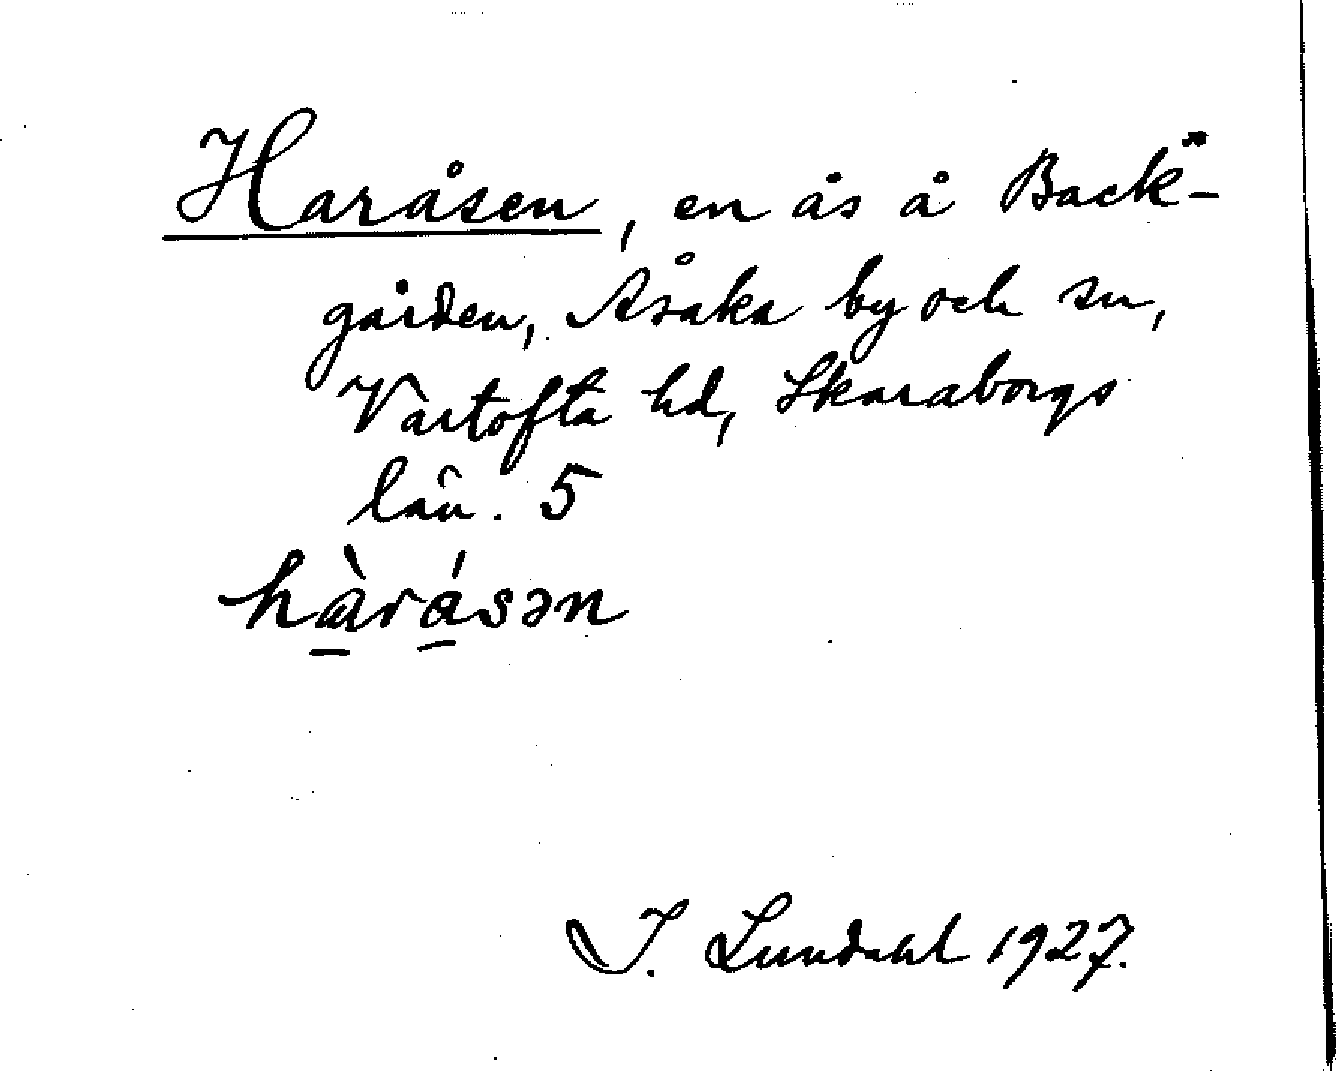 Haråsen, en ås å Back-
gården, Åsaka by och sn,
Vartofta hd, Skaraborgs
län. 5
hàrásən
I. Lundahl 1927.